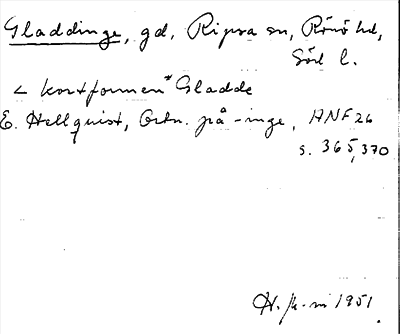 Gladdinge, gd, Ripsa sn, Rönö hd,
Söd l.
< kortformen *Gladde
E. Hellquist, Ortn. på -inge, ANF 26
s. 365, 370
1951.